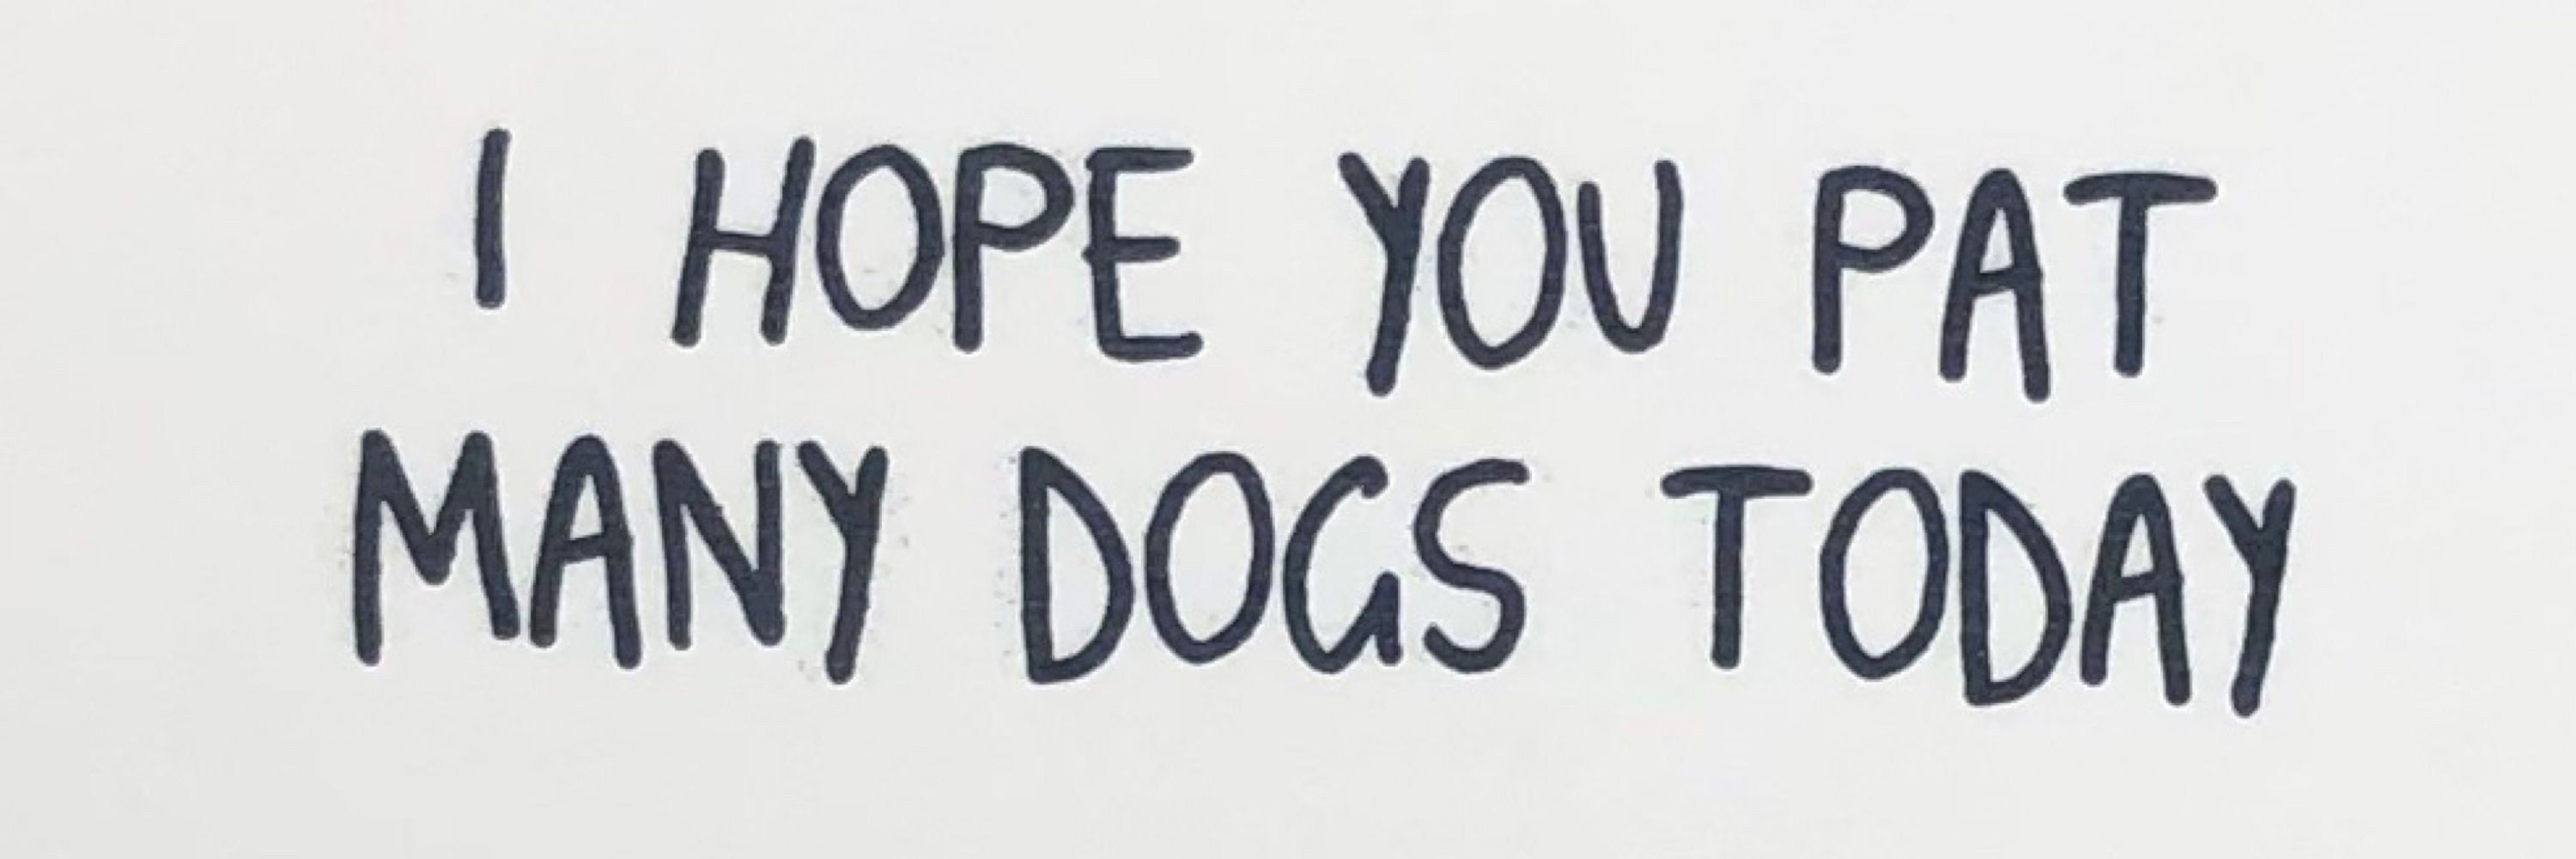 I HOPE YOU PAT
MANY DOGS TODAY